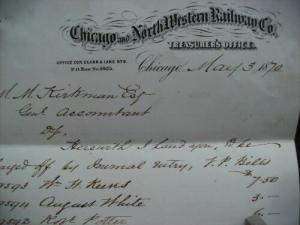 Chicago and North Western Railway Co.
TREASURER'S OFFICE.
OFFICE COR. CLARK & LAKE STS.
Chicago, May 3, 1870
M. M. Kirkman Esq
Genl Accountant
Herewith I hand you, to be
payed off by Journal entry, V. P. Bills
Wm H. Keens $7.50
August White 5.-
Potter 6.-